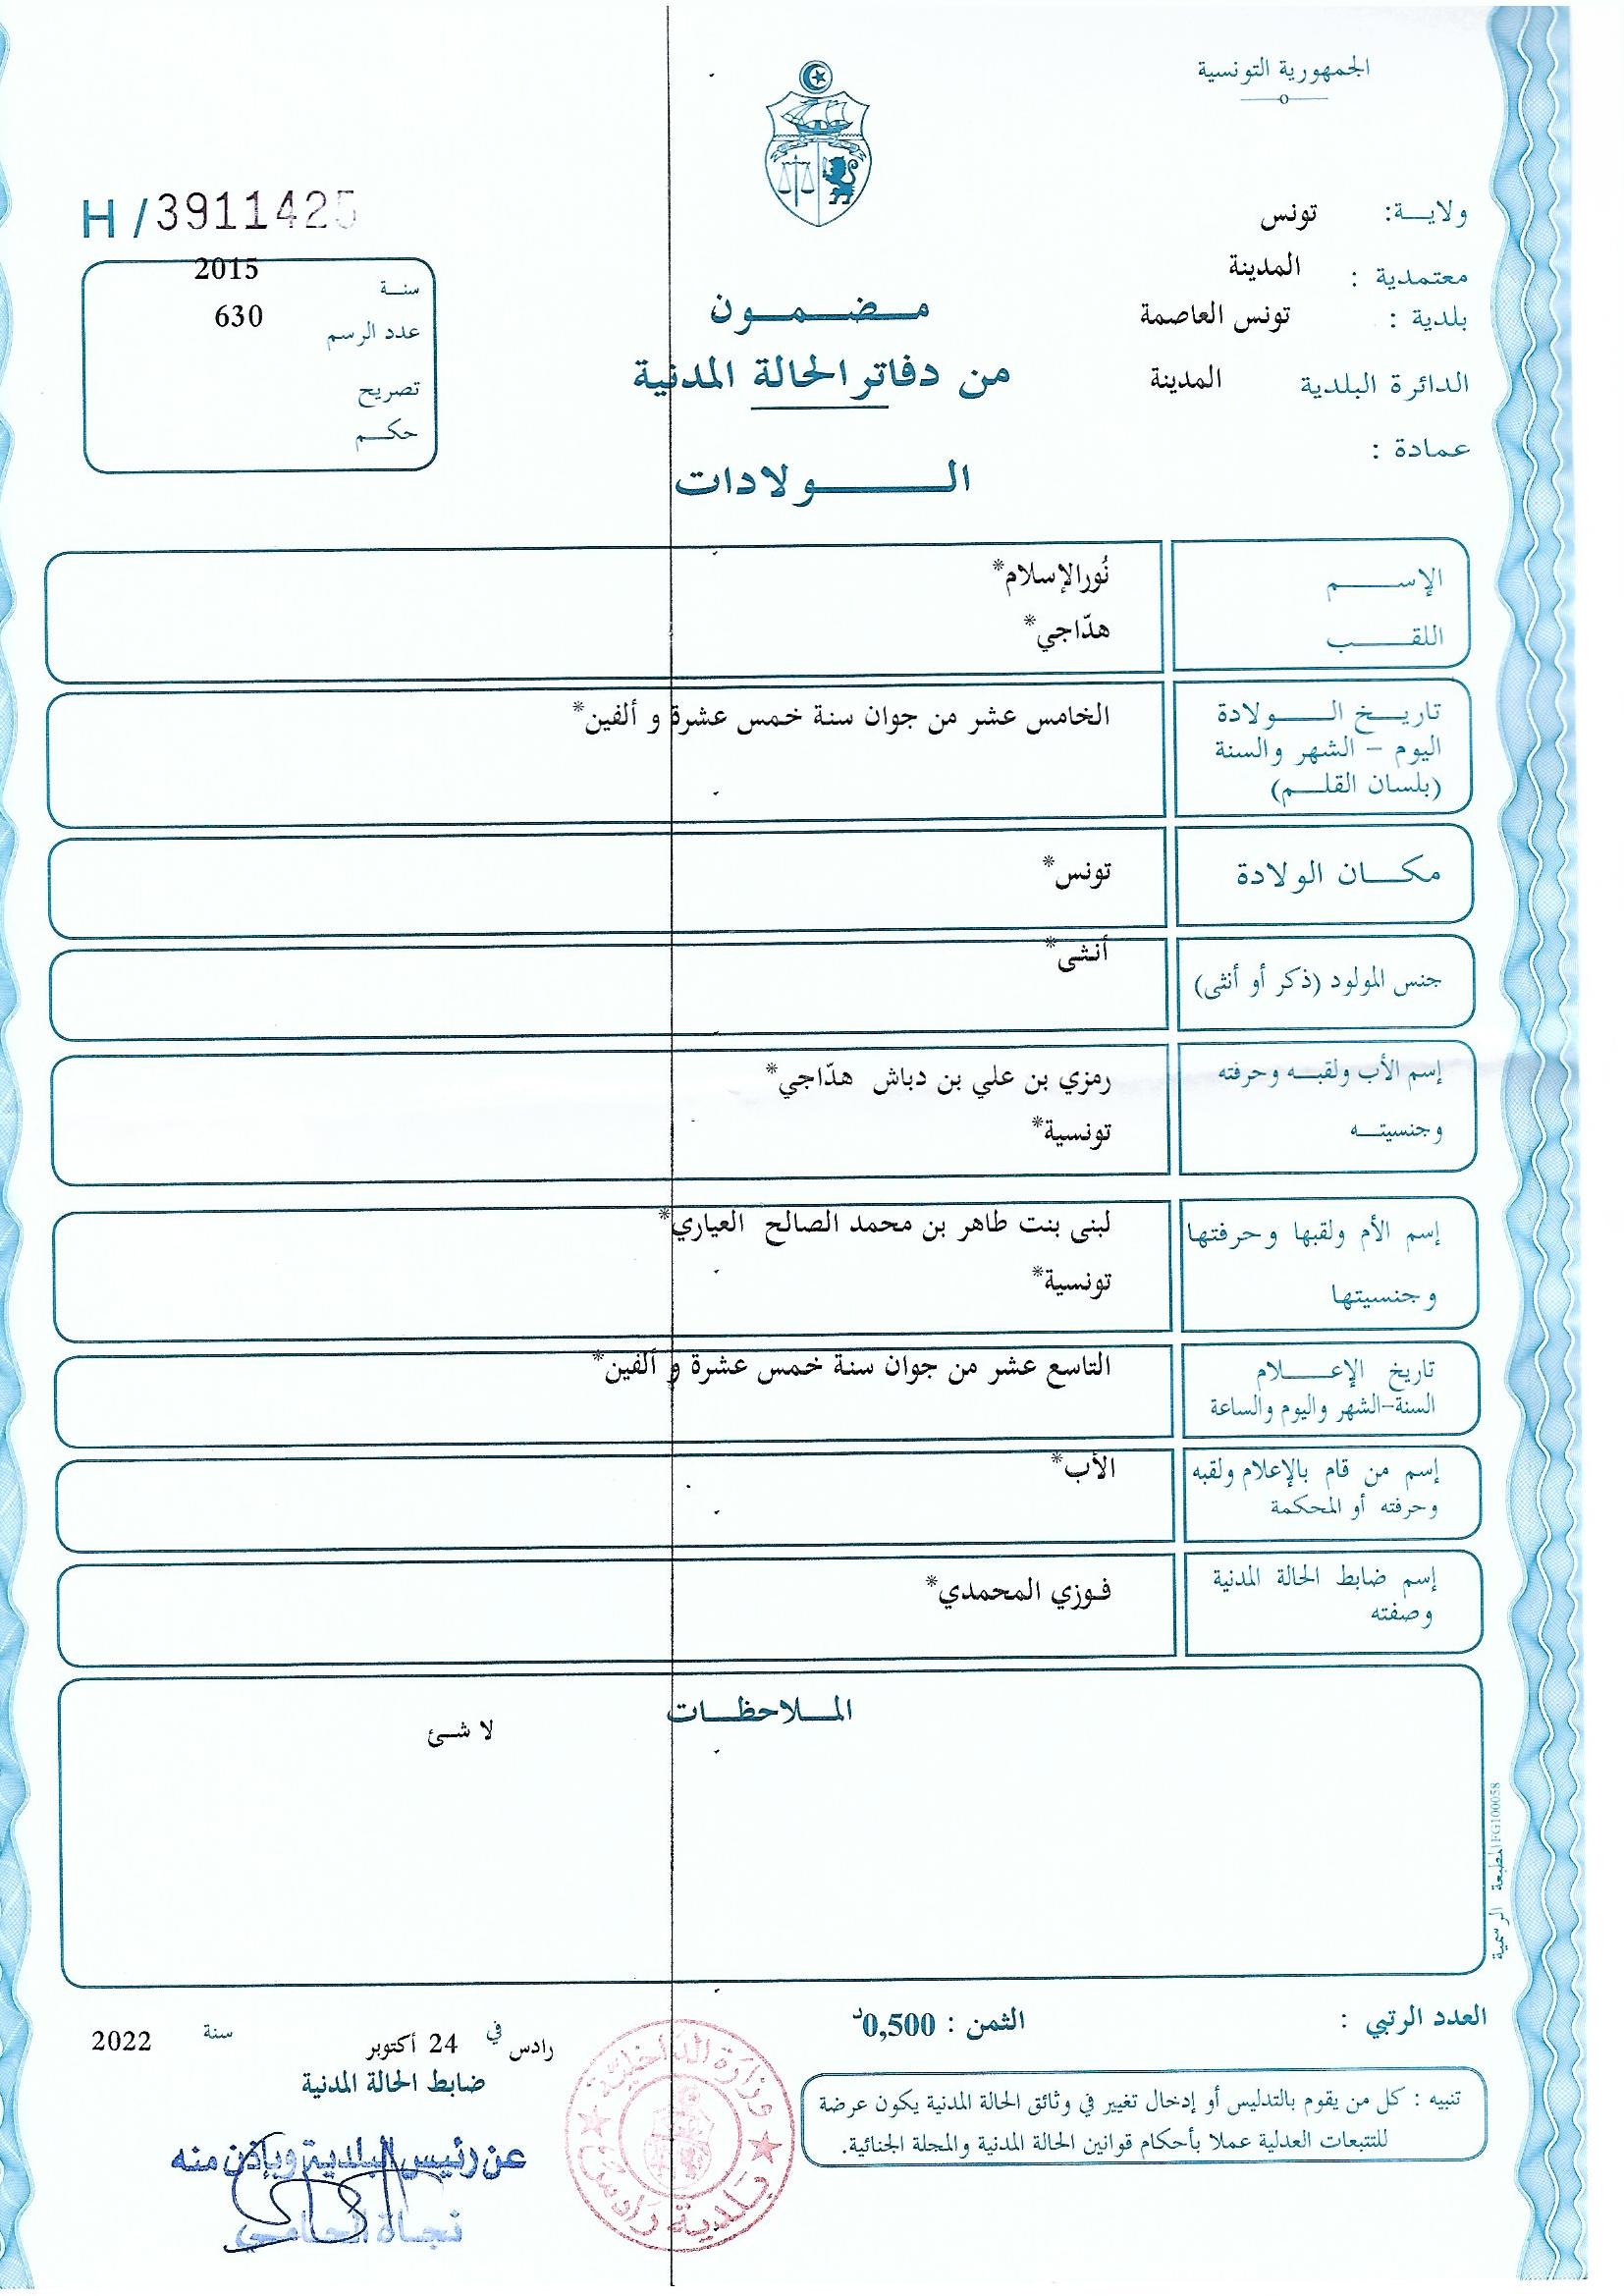 الجمهورية التونسية
ولايـــة: تونس
معتمدية : المدينة
بلدية : تونس العاصمة
الدائرة البلدية المدينة
عمادة :
H/3911425
سنــة 2015
عدد الرسم 630
تصريح
حكــم
مــضــمــون
من دفاتر الحالة المدنية
الــــولادات
الإســـــم نُورالإسلام*
اللقـــــب هدّاجي*
تاريـــخ الــــولادة الخامس عشر من جوان سنة خمس عشرة و ألفين*
اليوم - الشهر والسنة
(بلسان القلــم)
مكـــان الولادة تونس*
جنس المولود (ذكر أو أنثى) أنثى*
إسم الأب ولقبــه وحرفته رمزي بن علي بن دباش هدّاجي*
وجنسيتــه تونسية*
إسم الأم ولقبها وحرفتها لبنى بنت طاهر بن محمد الصالح العياري*
وجنسيتها تونسية*
تاريخ الإعـــلام التاسع عشر من جوان سنة خمس عشرة و ألفين*
السنة-الشهر واليوم والساعة
إسم من قام بالإعلام ولقبه الأب*
وحرفته أو المحكمة
إسم ضابط الحالة المدنية فوزي المحمدي*
وصفته
المــلاحظــات
لا شئ
المطبعة الرسمية FG100058
العدد الرتبي :
الثمن : 0,500د
رادس في 24 أكتوبر سنة 2022
ضابط الحالة المدنية
تنبيه : كل من يقوم بالتدليس أو إدخال تغيير في وثائق الحالة المدنية يكون عرضة
للتتبعات العدلية عملا بأحكام قوانين الحالة المدنية والمجلة الجنائية.
وزارة الداخلية
بلدية رادس
عن رئيس البلدية وبإذن منه
نجاة